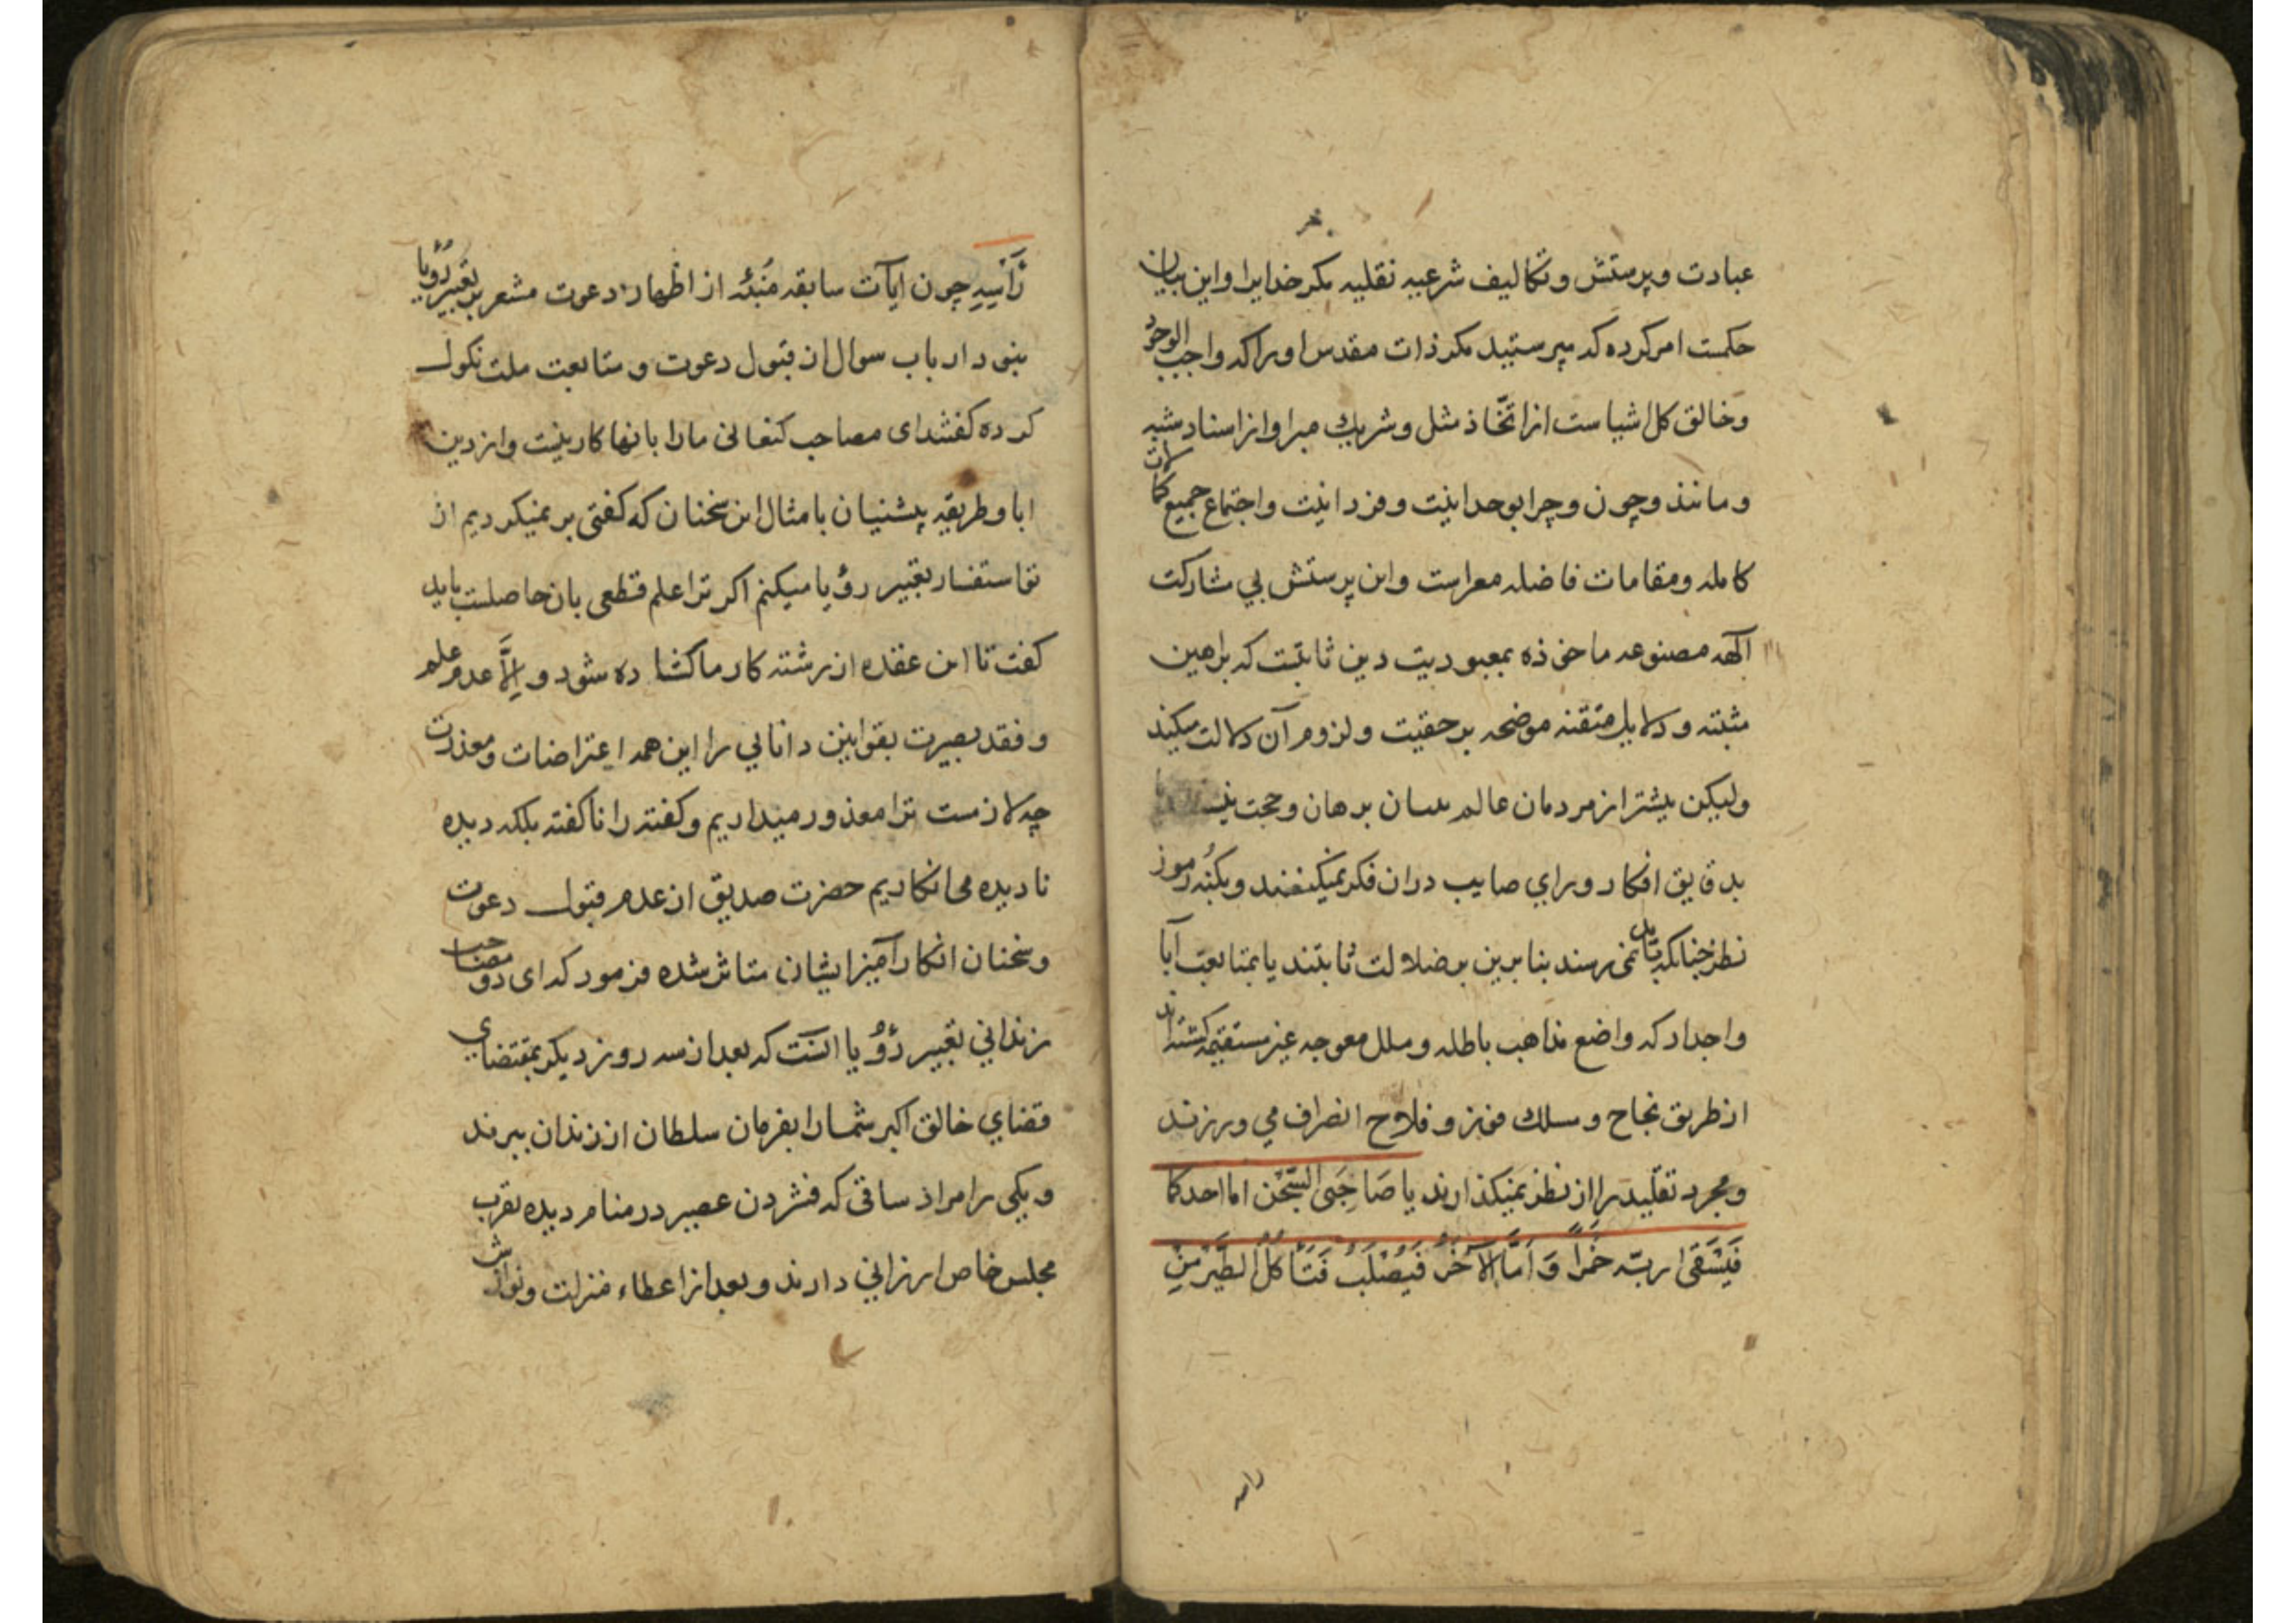 عبادت و پرستش و تکالیف شرعیه نقلیه مکر خدایرا و این بیان
حکمت امر کرده که مپرستید مکر ذات مقدس او را که واجب الوجود
و خالق کل اشیا ست از اتّخاذ مثل و شریك مبرا و از اسناد مشبه
و مانند و چون و چرا بوحدانیت و فردانیت و اجتماع جمیع کمالات
کامله و مقامات فاضله معراست و این پرستش بی مشارکت
آلهه مصنوعه ماخوذه بمعبودیت دین ثابتست که براهین
مثبته و دلایل متقنه موضحه بر حقیت و لزوم آن دلالت میکند
ولیکن بیشتر از مردمان عالم بسان برهان و حجت
بدقایق افکار و برای صایب دران فکر نمیکنند و بکنُه رموز
نطر چنانکه باید نمی رسند بنا برین بر ضلالت ثابتند یا بمتابعت آبا
و اجداد که واضع مذاهب باطله و ملل معوجه غیر مستقیمه کشته اند
از طریق نجاح و مسلك فوز و فلاح انصراف می ورزند
و مجرد تقلید را از نظر نمیکذارند یا صَاحِبَیِ السِّجْن اما احدکما
فَیَسْقَی ربّه خَمْراً وَ اَمَّا الآخَرُ فَیُصْلَبُ فَتَأکُلُ الطَّیْرُ مِنْ
راسه
رَأسِهِ چون ایآت سابقه مُنبئه از اظهار دعوت مشعر بر تعبیر رُؤیا
بنود ارباب سوال از قبول دعوت و متابعت ملت نکول
کرده کفتند ای مصاحب کنعانی ما را بانها کار نیست و از دین
ابا و طریقه پیشنیان بامثال این سخنان که کفتی بر نمیکردیم از
تو استفسار تعبیر رؤیا میکنم اکر ترا علم قطعی بان حاصلست باید
کفت تا این عقده از رشته کار ما کشاده شود و اِلاَّ عدم علم
و فقد بصیرت بقوانین دانایی را این همه اعتراضات و معذرت
چه لازمست ترا معذور میداریم و کفته را ناکفته بلکه دیده
نادیده می انکاریم حضرت صدیق از عدم قبول دعوت
و سخنان انکار آمیز ایشان متاثر شده فرمود که ای دو مصاحب
زندانی تعبیر رُؤیا اینست که بعد از سه روز دیکر بمقتضای
قضای خالق اکبر شما را بفرمان سلطان از زندان ببرند
و یکی را مراد ساقی که فشردن عصیر در منام دیده بقرب
مجلس خاص ارزانی دارند و بعد از اعطاء منزلت و نوازش